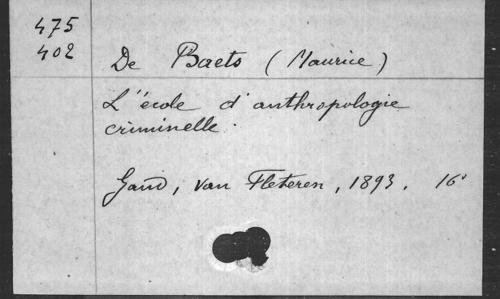 475
402
De Baets (Maurice)
L'école d'anthropologie
criminelle.
Gand, van Fleteren, 1893. 16°